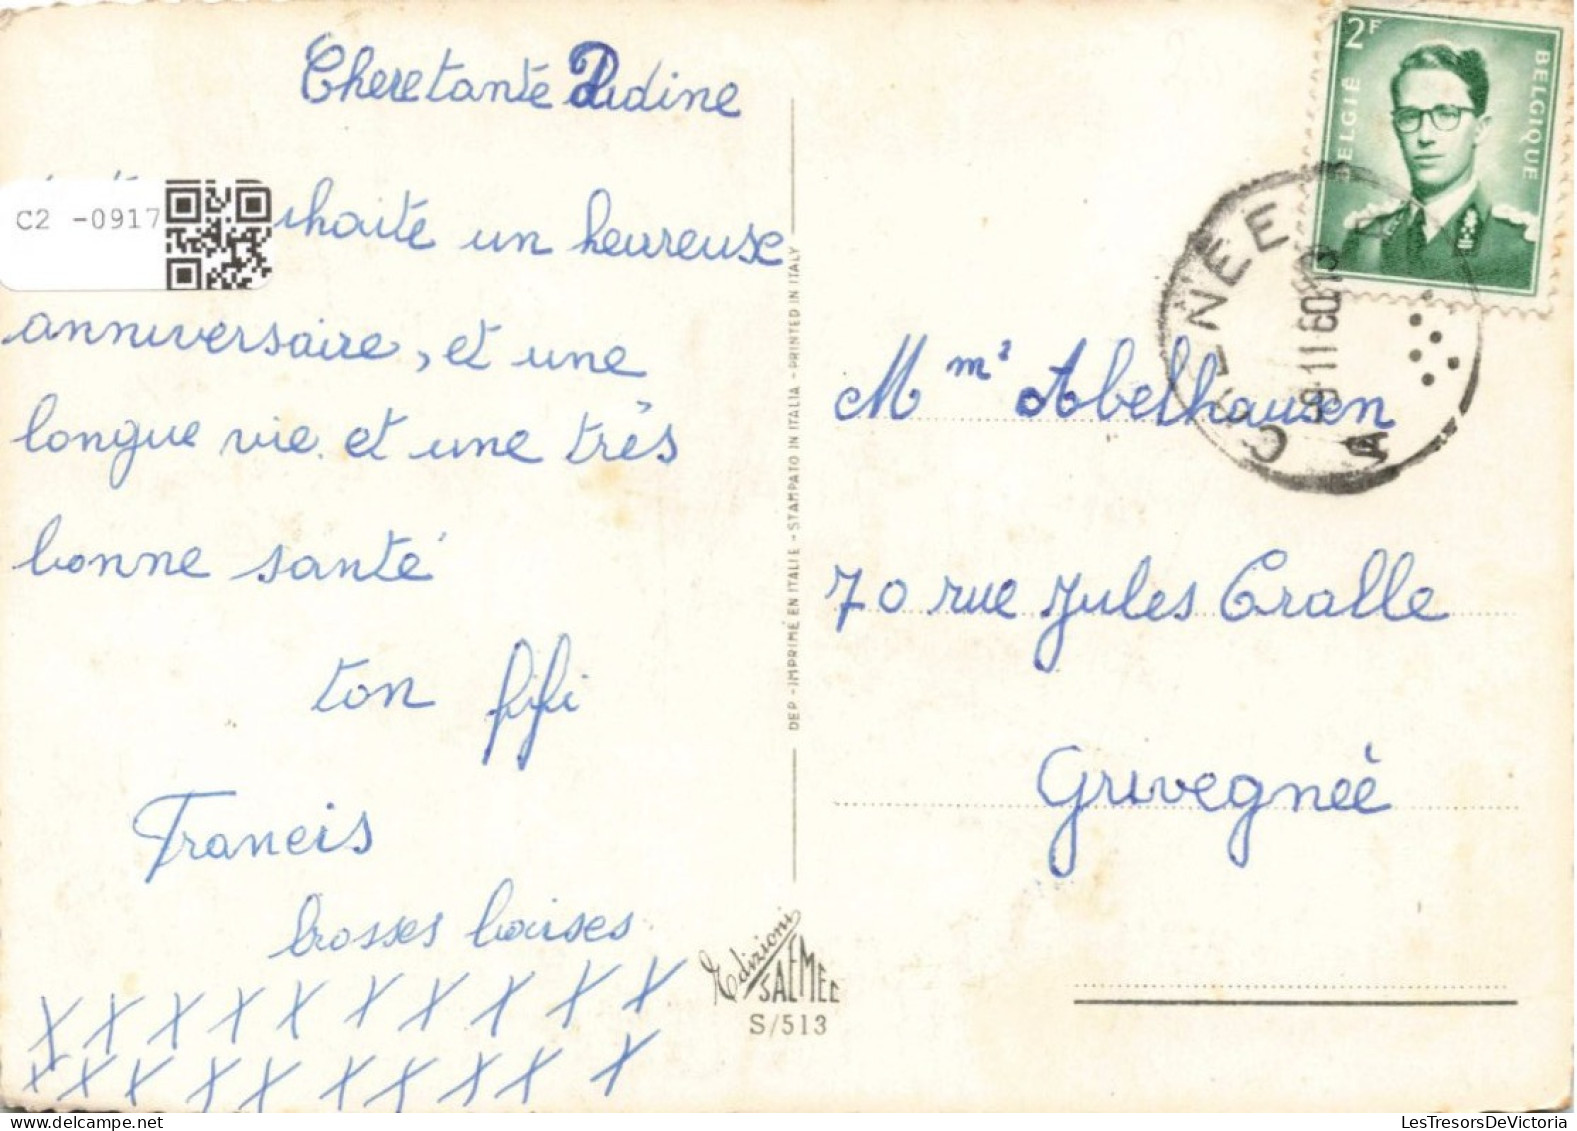 Chere tante Dudine
C2 -0917
uhaite un heureuse
anniversaire, et une
longue vie et une très
bonne santé
ton fifi
Francis
Crosses baises
X X X X X X X X X X
X X X X X X X X X X
DEP - IMPRIMÉ EN ITALIE - STAMPATO IN ITALIA - PRINTED IN ITALY
Edizioni
SAEMEC
S/513
2F
BELGIË
BELGIQUE
CHENEE
A
-9-11 60 13
Mme Abelhausen
70 rue Jules Cralle
Grivegnéé
LesTresorsDeVictoria
delcampe.net